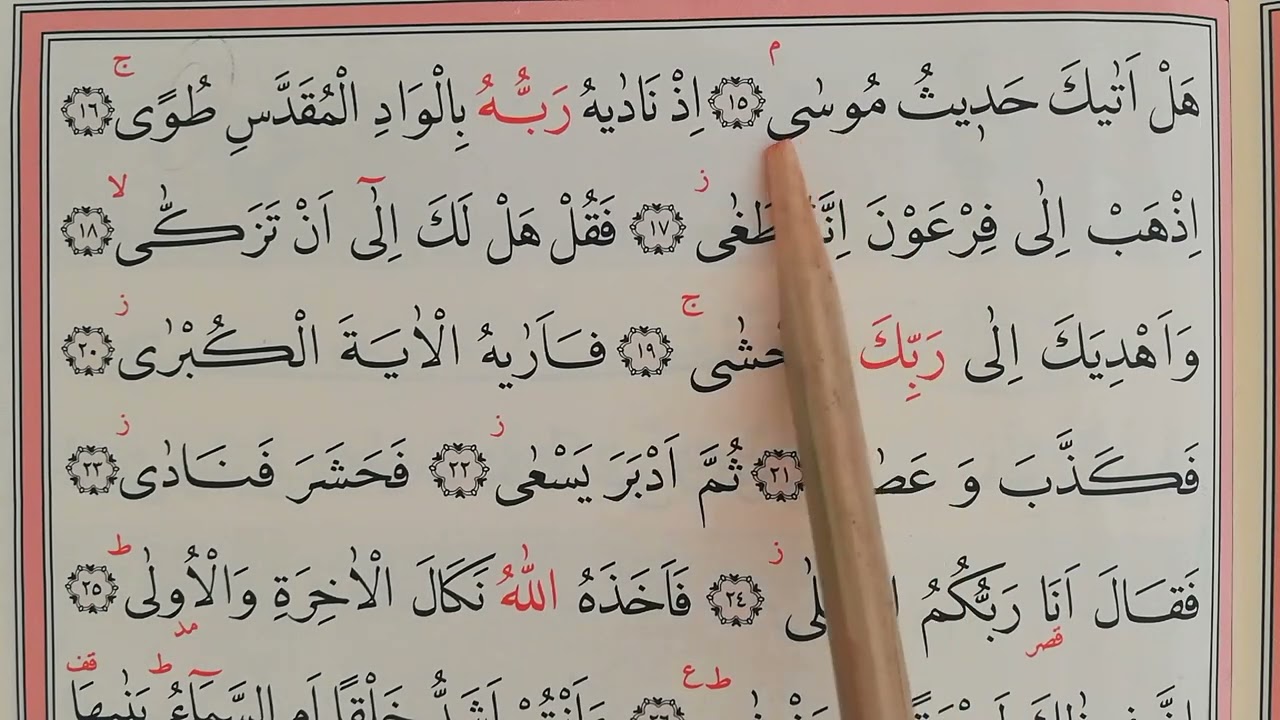 هَلْ اَتٰيكَ حَد۪يثُ مُوسٰىۢ م ﴿١٥﴾ اِذْ نَادٰيهُ رَبُّهُ بِالْوَادِ الْمُقَدَّسِ طُوًى ج ﴿١٦﴾
اِذْهَبْ اِلٰى فِرْعَوْنَ طَغٰى ز ﴿١٧﴾ فَقُلْ هَلْ لَكَ اِلٰٓى اَنْ تَزَكّٰى لا ﴿١٨﴾
وَاَهْدِيَكَ اِلٰى رَبِّكَ ج ﴿١٩﴾ فَاَرٰيهُ الْاٰيَةَ الْكُبْرٰى ز ﴿٢٠﴾
فَكَذَّبَ وَ ﴿٢١﴾ ثُمَّ اَدْبَرَ يَسْعٰى ز ﴿٢٢﴾ فَحَشَرَ فَنَادٰى ز ﴿٢٣﴾
فَقَالَ اَنَا قصر رَبُّكُمُ ز ﴿٢٤﴾ فَاَخَذَهُ اللّٰهُ نَكَالَ الْاٰخِرَةِ وَالْاُو۫لٰى مد ط ﴿٢٥﴾
ط ع ﴿٢٦﴾ ءَاَنْتُمْ اَشَدُّ خَلْقًا اَمِ السَّمَٓاءُ ط بَنٰيهَا قف